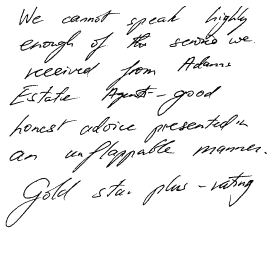 We cannot speak highly
enough of the service we
received from Adams
Estate Agent - good
honest advice presented in
an unflappable manner.
Gold star plus - rating